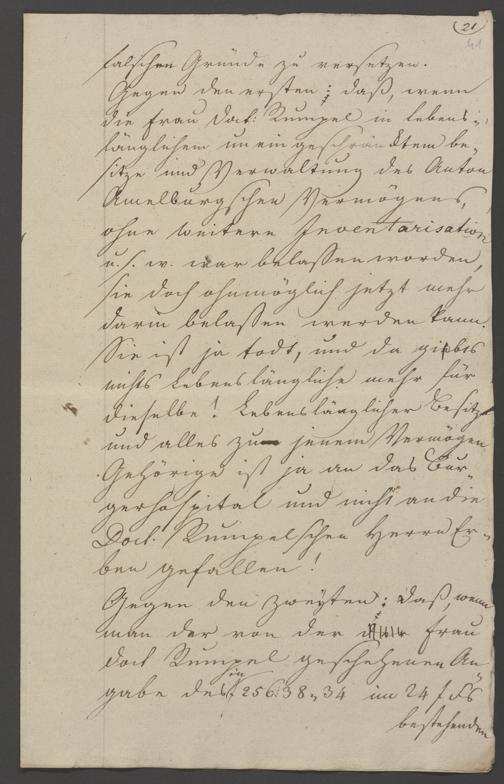 21
41
falschen Gründe zu versetzen.
Gegen den ersten: daß, wenn
die Frau Doct: Rumpel in lebens-
länglichem uneingeschränktem be-
sitze und Verwaltung des Anton
Amelburgschen Vermögens,
ohne weitere Inventarisation
u. s. w. war belassen worden,
sie doch ohnmöglich jetzt mehr
darin belassen werden kann.
Sie ist ja todt, und da giebts
nichts Lebenslängliche mehr für
dieselbe! Lebenslänglicher Besitz
und alles zu jenem Vermögen
Gehörige ist ja an das Bür
gerhospital und nicht an die
Doct. Rumpelschen Herrn Er-
ben gefallen!
Gegen den zweyten: daß, wenn
man der von der Frau
Doct Rumpel geschehenen An
gabe des in 256:38„34 im 24 f Fs
bestehenden